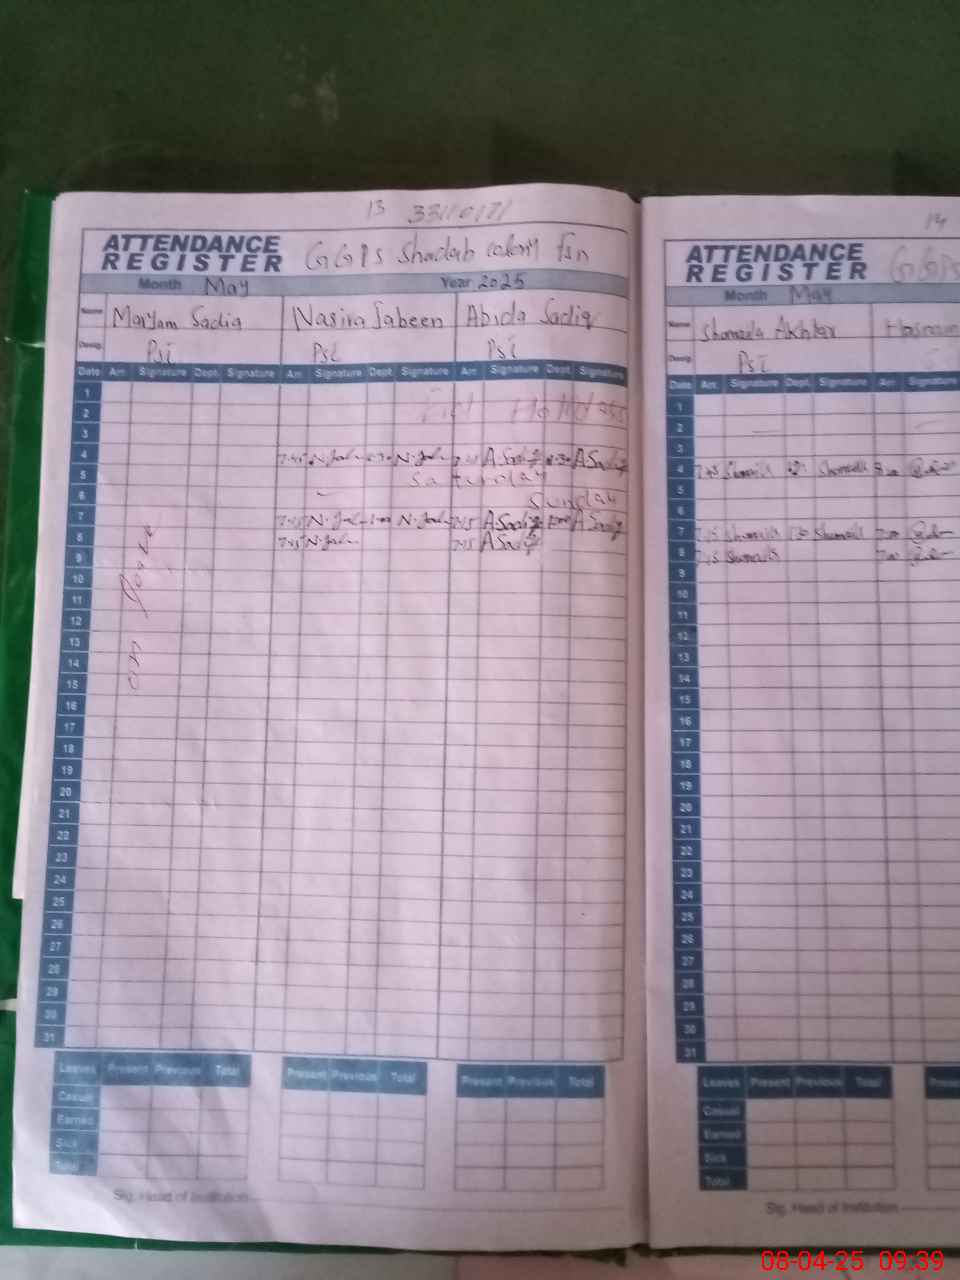 13 33110171
ATTENDANCE
REGISTER GGPS Shadab colony fsn
Month May Year 2025
Name Maryam Sadiq Nasira Jabeen Abida Sadiq
Desig. Psi Psi Psi
Date Arr. Signature Dept. Signature Arr. Signature Dept. Signature Arr. Signature Dept. Signature
1
2 Eid Holidays
3
4 7:45 N.Jab N.Jab A Sadiq A Sadiq
5 Saturday
6 Sunday
7 7:45 N.Jab N.Jab 7:15 A Sadiq A Sadiq
8 7:45 N.Jab 7:15 A Sadiq
9
10
11
12
13
14
15
16
17
18
19
20
21
22
23
24
25
26
27
28
29
30
31
Leaves Present Previous Total Present Previous Total Present Previous Total
Casual
Earned
Sick
Total
Sig. Head of Institution
14
ATTENDANCE
REGISTER GGPS
Month May
Name Shamaila Akhtar Hasnain
Desig. Psi
Date Arr. Signature Dept. Signature Arr. Signature
1
2
3
4 7:45 Shamaila Shamaila
5
6
7 7:15 Shamaila Shamaila 7:00
8 7:15 Shamaila 7:00
9
10
11
12
13
14
15
16
17
18
19
20
21
22
23
24
25
26
27
28
29
30
31
Leaves Present Previous Total
Casual
Earned
Sick
Total
Sig. Head of Institution
08-04-25 09:39